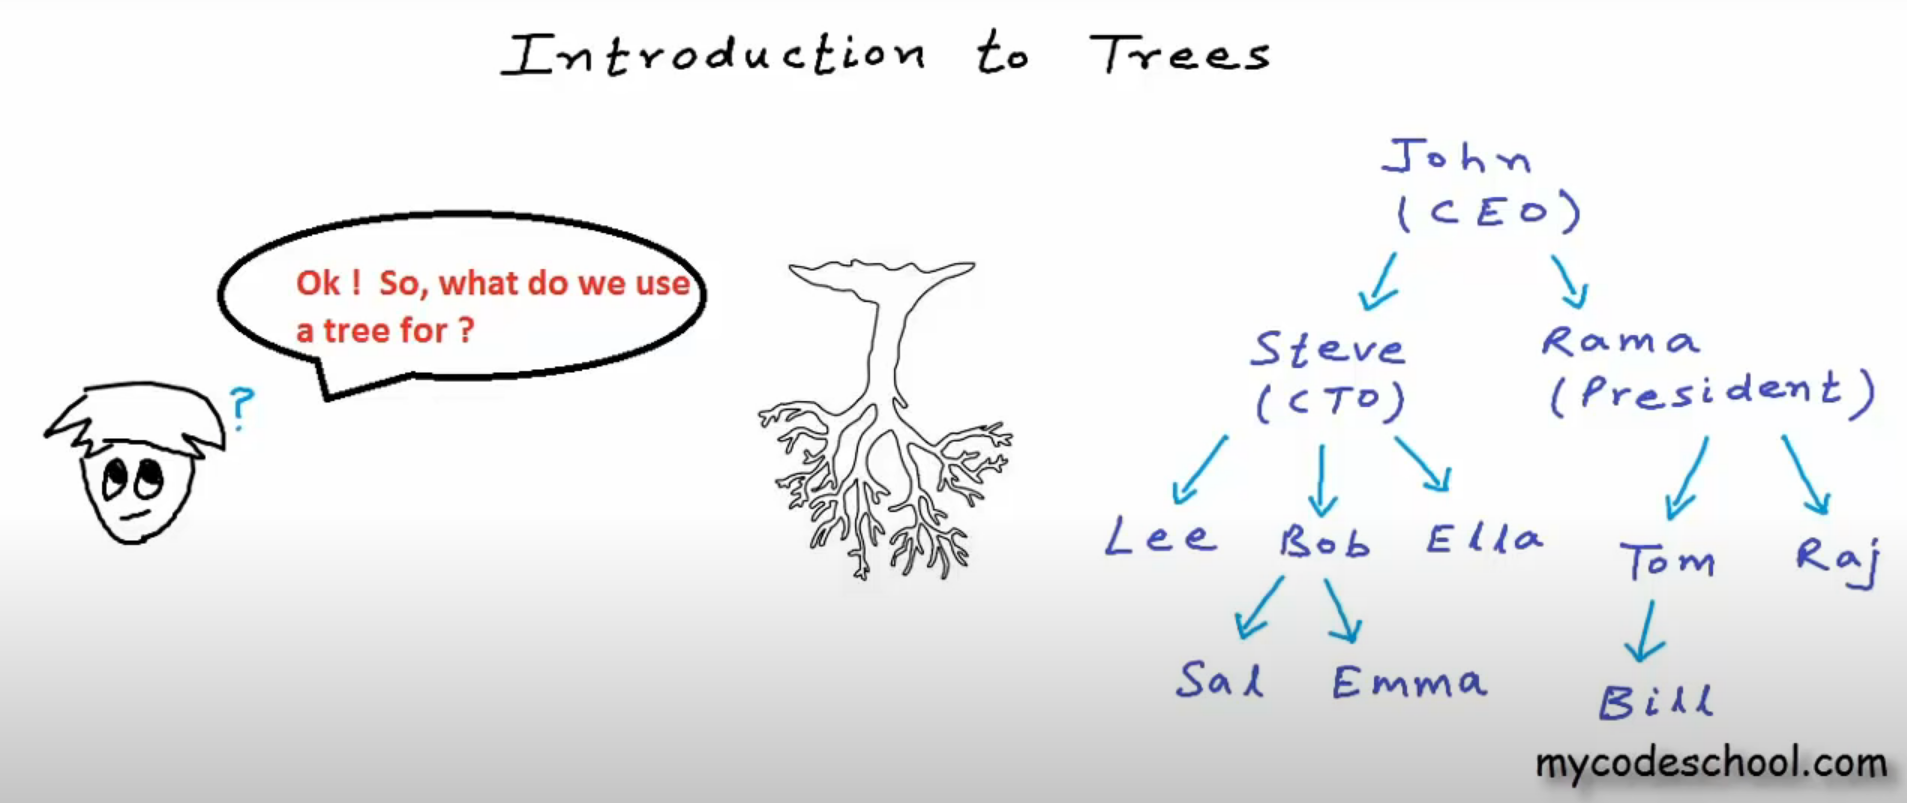 Introduction to Trees
Ok ! So, what do we use
a tree for ?
?
John
(CEO)
Steve
(CTO)
Rama
(President)
Lee Bob Ella
Tom Raj
Sal Emma
Bill
mycodeschool.com